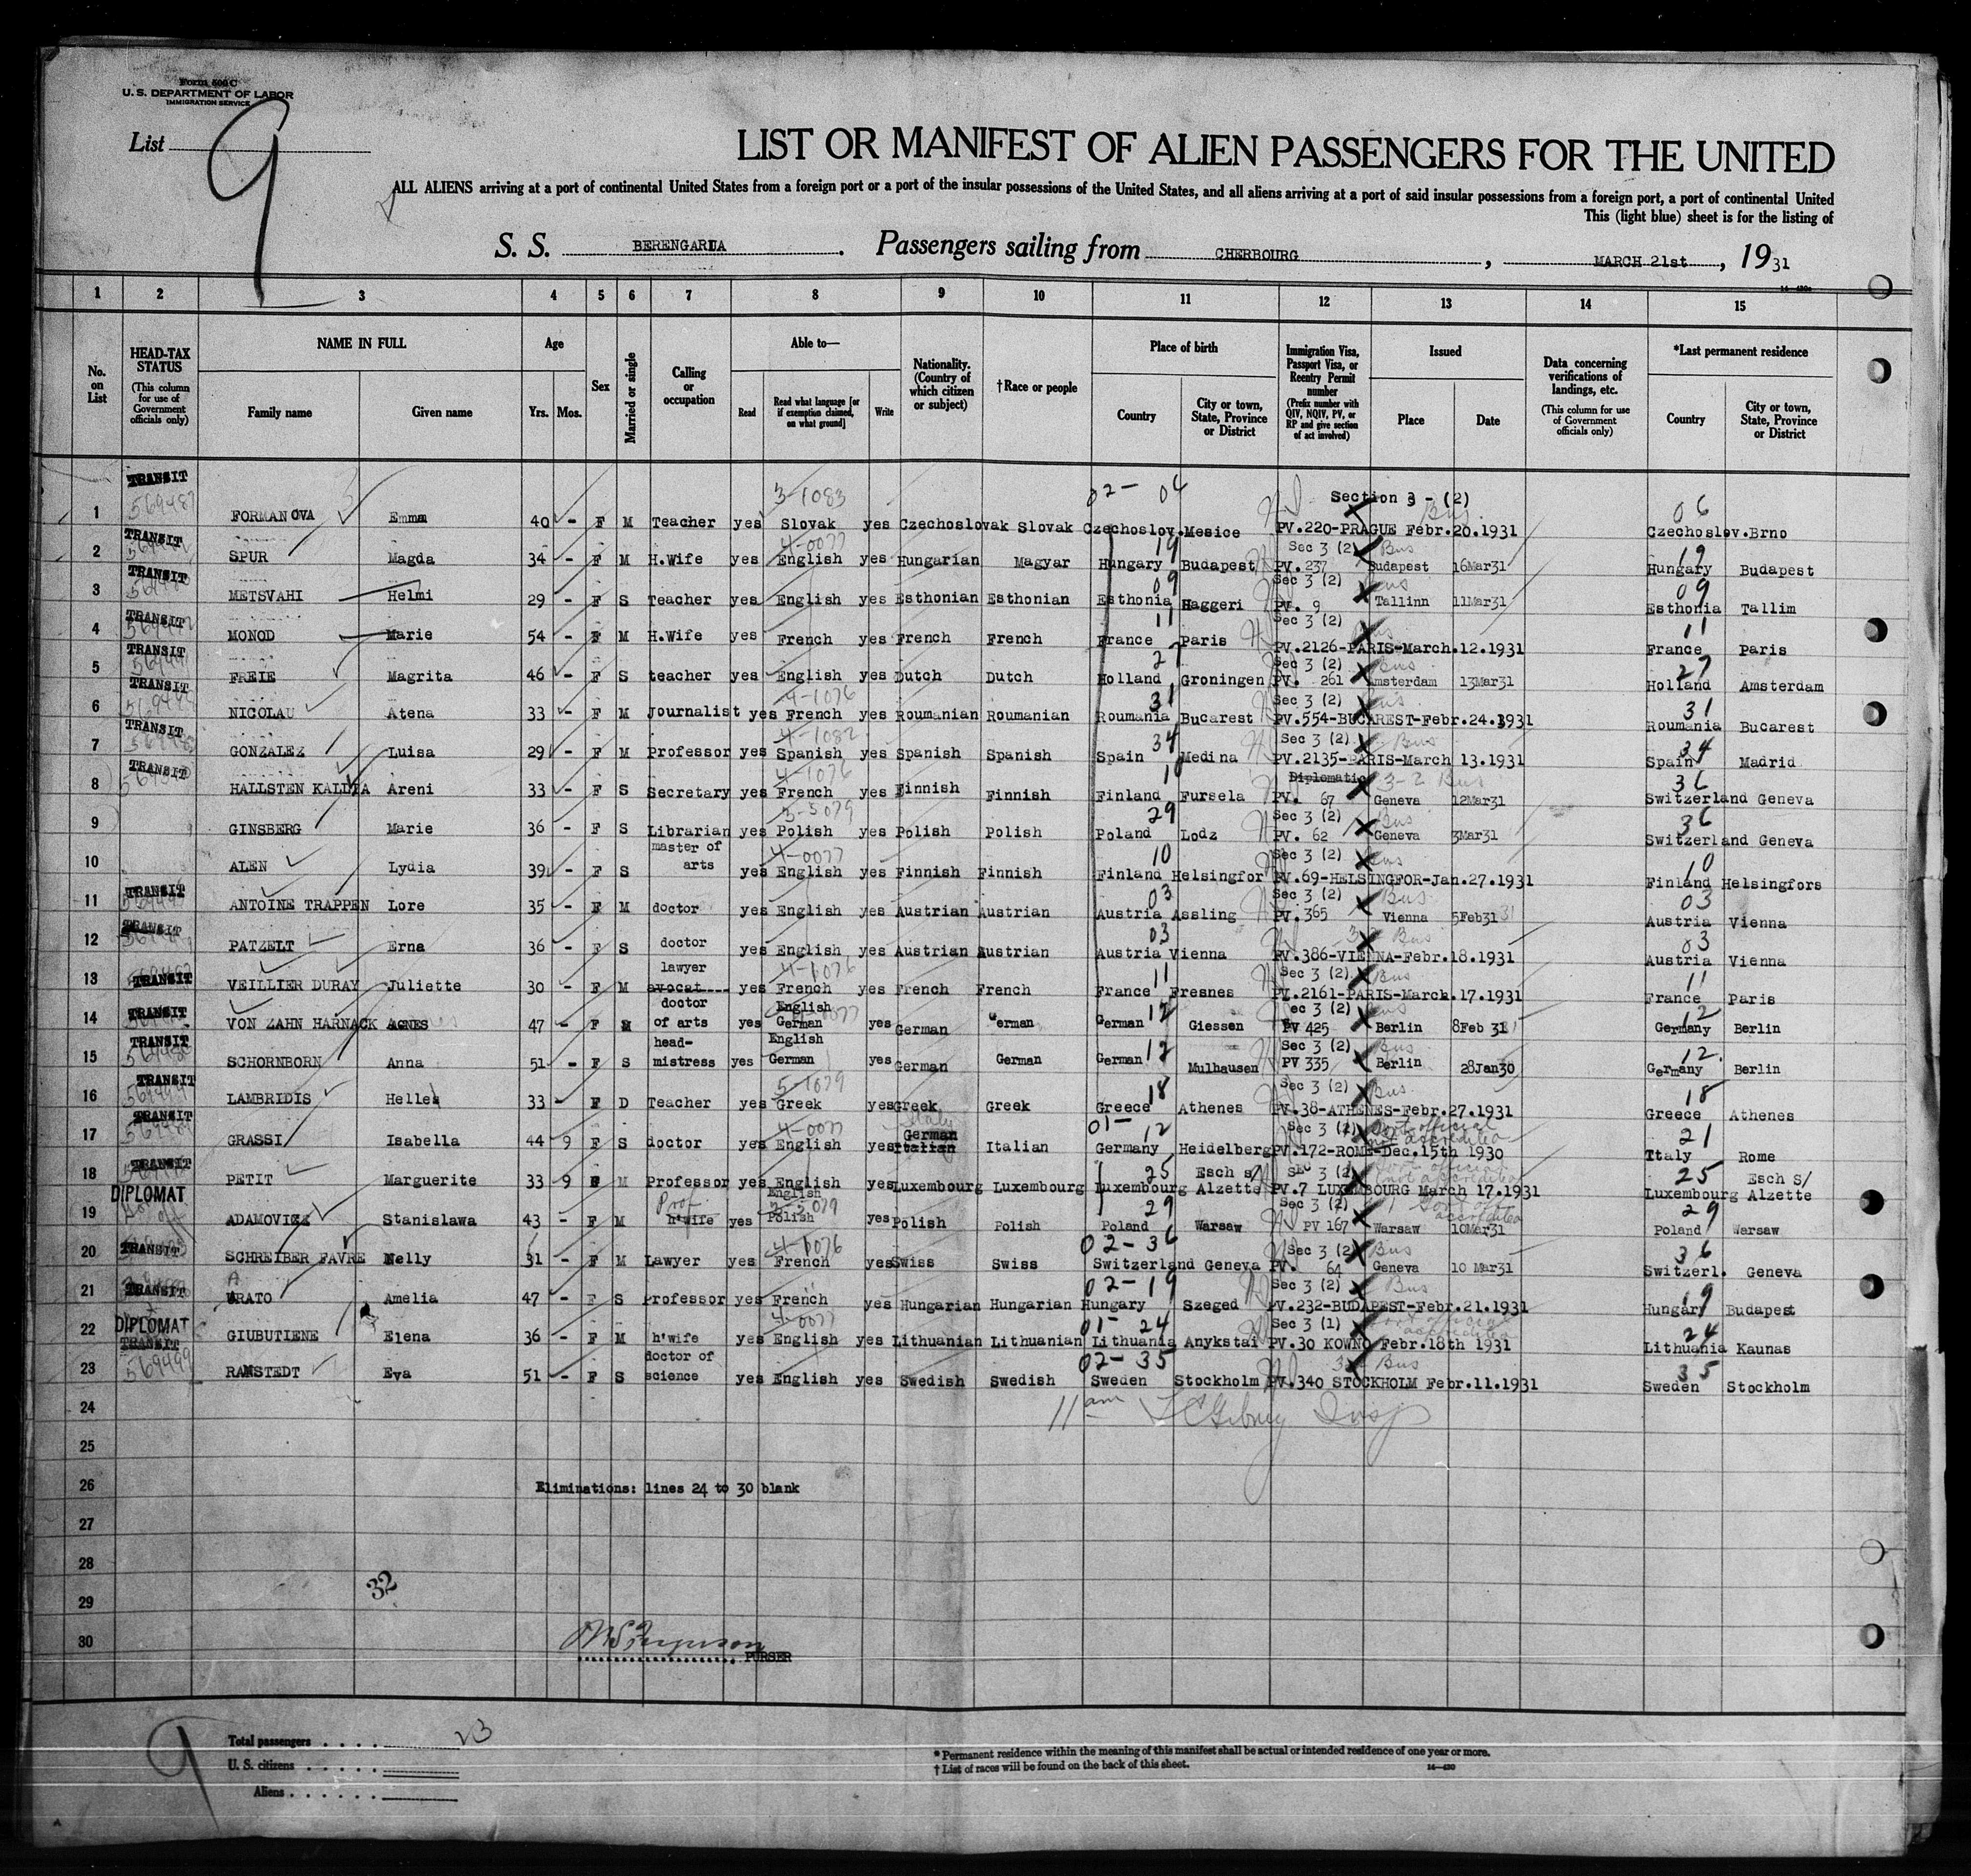 Form 500 C
U. S. DEPARTMENT OF LABOR
IMMIGRATION SERVICE
List 9
LIST OR MANIFEST OF ALIEN PASSENGERS FOR THE UNITED
ALL ALIENS arriving at a port of continental United States from a foreign port or a port of the insular possessions of the United States, and all aliens arriving at a port of said insular possessions from a foreign port, a port of continental United
This (light blue) sheet is for the listing of
S. S. BERENGARIA. Passengers sailing from CHERBOURG, MARCH 21st, 1931
1 2 3 4 5 6 7 8 9 10 11 12 13 14 15
No. on List
HEAD-TAX STATUS (This column for use of Government officials only)
NAME IN FULL Family name Given name
Age Yrs. Mos.
Sex
Married or single
Calling or occupation
Able to— Read Read what language [or if exemption claimed, on what ground] Write
Nationality. (Country of which citizen or subject)
†Race or people
Place of birth Country City or town, State, Province or District
Immigration Visa, Passport Visa, or Reentry Permit number (Prefix number with QIV, NQIV, PV, or RP and give section of act involved)
Issued Place Date
Data concerning verifications of landings, etc. (This column for use of Government officials only)
*Last permanent residence Country City or town, State, Province or District
TRANSIT 3-1083 02- 04 Section 3 - (2) Bus 06
1 569487 FORMANOVA Emma 40 - F M Teacher yes Slovak yes Czechoslovak Slovak Czechoslov. Mesice PV.220-PRAGUE Febr.20.1931 Czechoslov. Brno
TRANSIT 4-0077 19 Sec 3 (2) Bus 19
2 SPUR Magda 34 - F M H.Wife yes English yes Hungarian Magyar Hungary Budapest PV. 237 Budapest 16Mar31 Hungary Budapest
TRANSIT 09 Sec 3 (2) Bus 09
3 METSVAHI Helmi 29 - F S Teacher yes English yes Esthonian Esthonian Esthonia Haggeri PV. 9 Tallinn 11Mar31 Esthonia Tallim
TRANSIT 11 Sec 3 (2) Bus 11
4 MONOD Marie 54 - F M H.Wife yes French yes French French France Paris PV.2126-PARIS-March.12.1931 France Paris
TRANSIT 27 Sec 3 (2) Bus 27
5 FREIE Magrita 46 - F S teacher yes English yes Dutch Dutch Holland Groningen PV. 261 Amsterdam 13Mar31 Holland Amsterdam
TRANSIT 4-1076 31 Sec 3 (2) Bus 31
6 NICOLAU Atena 33 - F M Journalist yes French yes Roumanian Roumanian Roumania Bucarest PV.554-BUCAREST-Febr.24.1931 Roumania Bucarest
TRANSIT 4-1082 34 Sec 3 (2) Bus 34
7 GONZALEZ Luisa 29 - F M Professor yes Spanish yes Spanish Spanish Spain Medina PV.2135-PARIS-March 13.1931 Spain Madrid
TRANSIT 4-1076 10 Diplomatic 3-2 Bus 36
8 HALLSTEN KALLIA Areni 33 - F S Secretary yes French yes Finnish Finnish Finland Fursela PV. 67 Geneva 12Mar31 Switzerland Geneva
3-3079 29 Sec 3 (2) Bus 36
9 GINSBERG Marie 36 - F S Librarian yes Polish yes Polish Polish Poland Lodz PV. 62 Geneva 3Mar31 Switzerland Geneva
master of 4-0077 10 Sec 3 (2) Bus 10
10 ALEN Lydia 39 - F S arts yes English yes Finnish Finnish Finland Helsingfor PV.69-HELSINGFOR-Jan.27.1931 Finland Helsingfors
TRANSIT 03 Sec 3 (2) Bus 03
11 ANTOINE TRAPPEN Lore 35 - F M doctor yes English yes Austrian Austrian Austria Assling PV. 365 Vienna 5Feb31 Austria Vienna
TRANSIT 03 Bus 03
12 PATZELT Erna 36 - F S doctor yes English yes Austrian Austrian Austria Vienna PV.386-VIENNA-Febr.18.1931 Austria Vienna
lawyer 4-1076 11 Sec 3 (2) Bus 11
13 TRANSIT VEILLIER DURAY Juliette 30 - F M avocat yes French yes French French France Fresnes PV.2161-PARIS-March.17.1931 France Paris
TRANSIT doctor English 12 Sec 3 (2) Bus 12
14 VON ZAHN HARNACK AGNES 47 - F M of arts yes German yes German German German Giessen PV 425 Berlin 8Feb 31 Germany Berlin
TRANSIT head- English 12 Sec 3 (2) Bus 12
15 SCHORNBORN Anna 51 - F S mistress yes German yes German German German Mulhausen PV 335 Berlin 28Jan30 Germany Berlin
TRANSIT 5-1079 18 Sec 3 (2) Bus 18
16 569491 LAMBRIDIS Helles 33 - F D Teacher yes Greek yes Greek Greek Greece Athenes PV.38-ATHENES-Febr.27.1931 Greece Athenes
TRANSIT 4-0077 Italy German 01- 12 Sec 3 (2) Govt official not accredited 21
17 GRASSI Isabella 44 9 F S doctor yes English yes Italian Italian Germany Heidelberg PV.172-ROME-Dec.15th 1930 Italy Rome
TRANSIT 25 Esch s/ Sec 3 (2) Govt official not accredited 25 Esch S/
18 PETIT Marguerite 33 9 F M Professor yes English yes Luxembourg Luxembourg Luxembourg Alzette PV.7 LUXEMBOURG March 17.1931 Luxembourg Alzette
DIPLOMAT Prof English 3-3079 29 Sec 3 (2) Govt off accredited 29
19 ADAMOVICZ Stanislawa 43 - F M h'wife yes Polish yes Polish Polish Poland Warsaw PV 167 Warsaw 10Mar31 Poland Warsaw
4-1076 02-36 Sec 3 (2) Bus 36
20 TRANSIT SCHREIBER FAVRE Nelly 31 - F M Lawyer yes French yes Swiss Swiss Switzerland Geneva PV. 64 Geneva 10 Mar31 Switzerl. Geneva
A 02-19 Sec 3 (2) Bus 19
21 TRANSIT URATO Amelia 47 - F S Professor yes French yes Hungarian Hungarian Hungary Szeged PV.232-BUDAPEST-Febr.21.1931 Hungary Budapest
DIPLOMAT 4-0077 01-24 Sec 3 (1) Govt official accredited 24
22 TRANSIT GIUBUTIENE Elena 36 - F M h'wife yes English yes Lithuanian Lithuanian Lithuania Anykstai PV.30 KOWNO Febr.18th 1931 Lithuania Kaunas
doctor of 02-35 Bus 35
23 569499 RAMSTEDT Eva 51 - F S science yes English yes Swedish Swedish Sweden Stockholm PV.340 STOCKHOLM Febr.11.1931 Sweden Stockholm
24 11 am Insp
25
26 Eliminations: lines 24 to 30 blank
27
28
29 32
30
PURSER
9
Total passengers 23
U. S. citizens
Aliens
* Permanent residence within the meaning of this manifest shall be actual or intended residence of one year or more.
† List of races will be found on the back of this sheet. 14—430